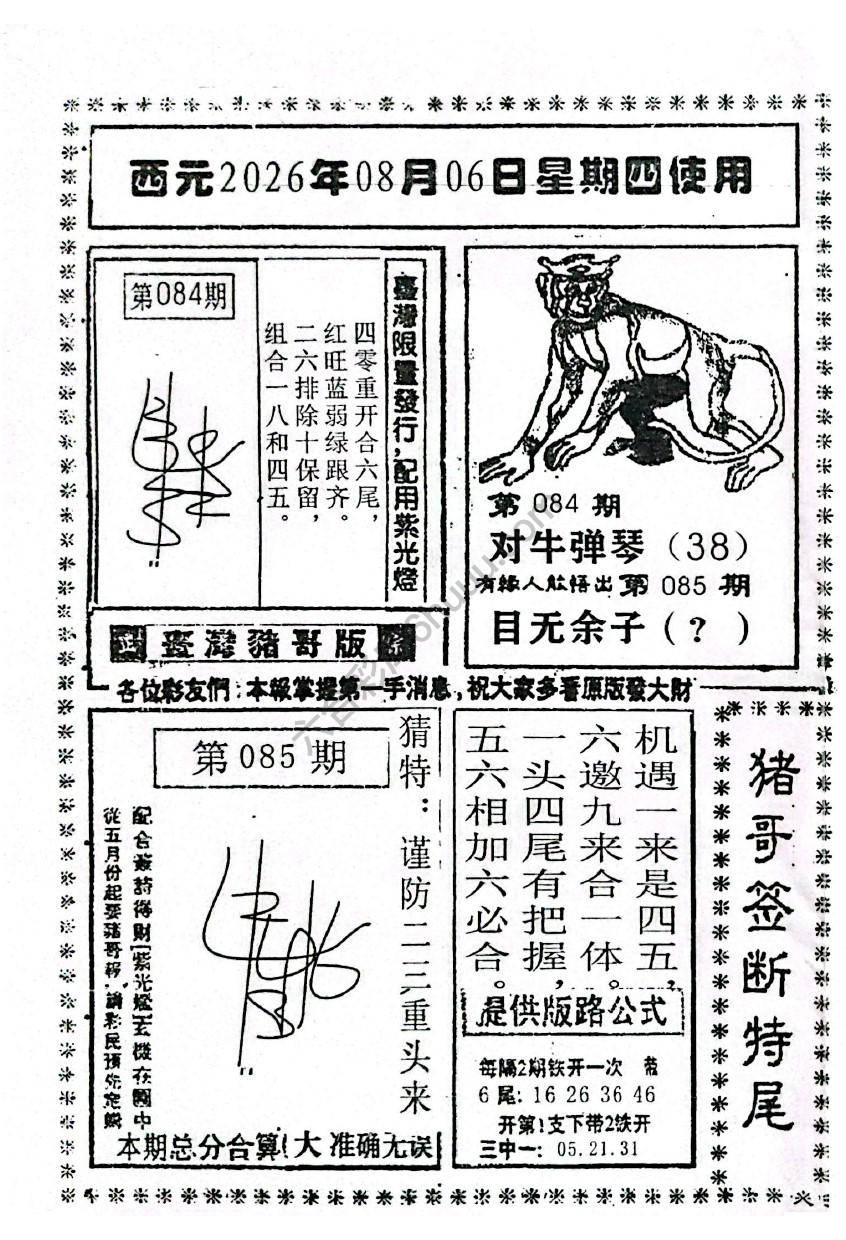 西元2026年08月06日星期四使用
第084期
臺灣限量發行,配用紫光燈
四零重开合六尾,
红旺蓝弱绿跟齐。
二六排除十保留,
组合一八和四五。
臺灣豬哥版
第 084 期
对牛弹琴（38）
有緣人能悟出 第 085 期
目无余子（?）
各位彩友們:本報掌握第一手消息,祝大家多看原版發大財
第085期
猜特：谨防二三重头来
從五月份起要豬哥報,請彩民預先定購
本期总分合算!大 准确无误
机遇一来是四五,
六邀九来合一体。
一头四尾有把握,
五六相加六必合。
提供版路公式
每隔2期铁开一次 带
6尾: 16 26 36 46
开第1支下带2铁开
三中一: 05.21.31
猪哥签断特尾